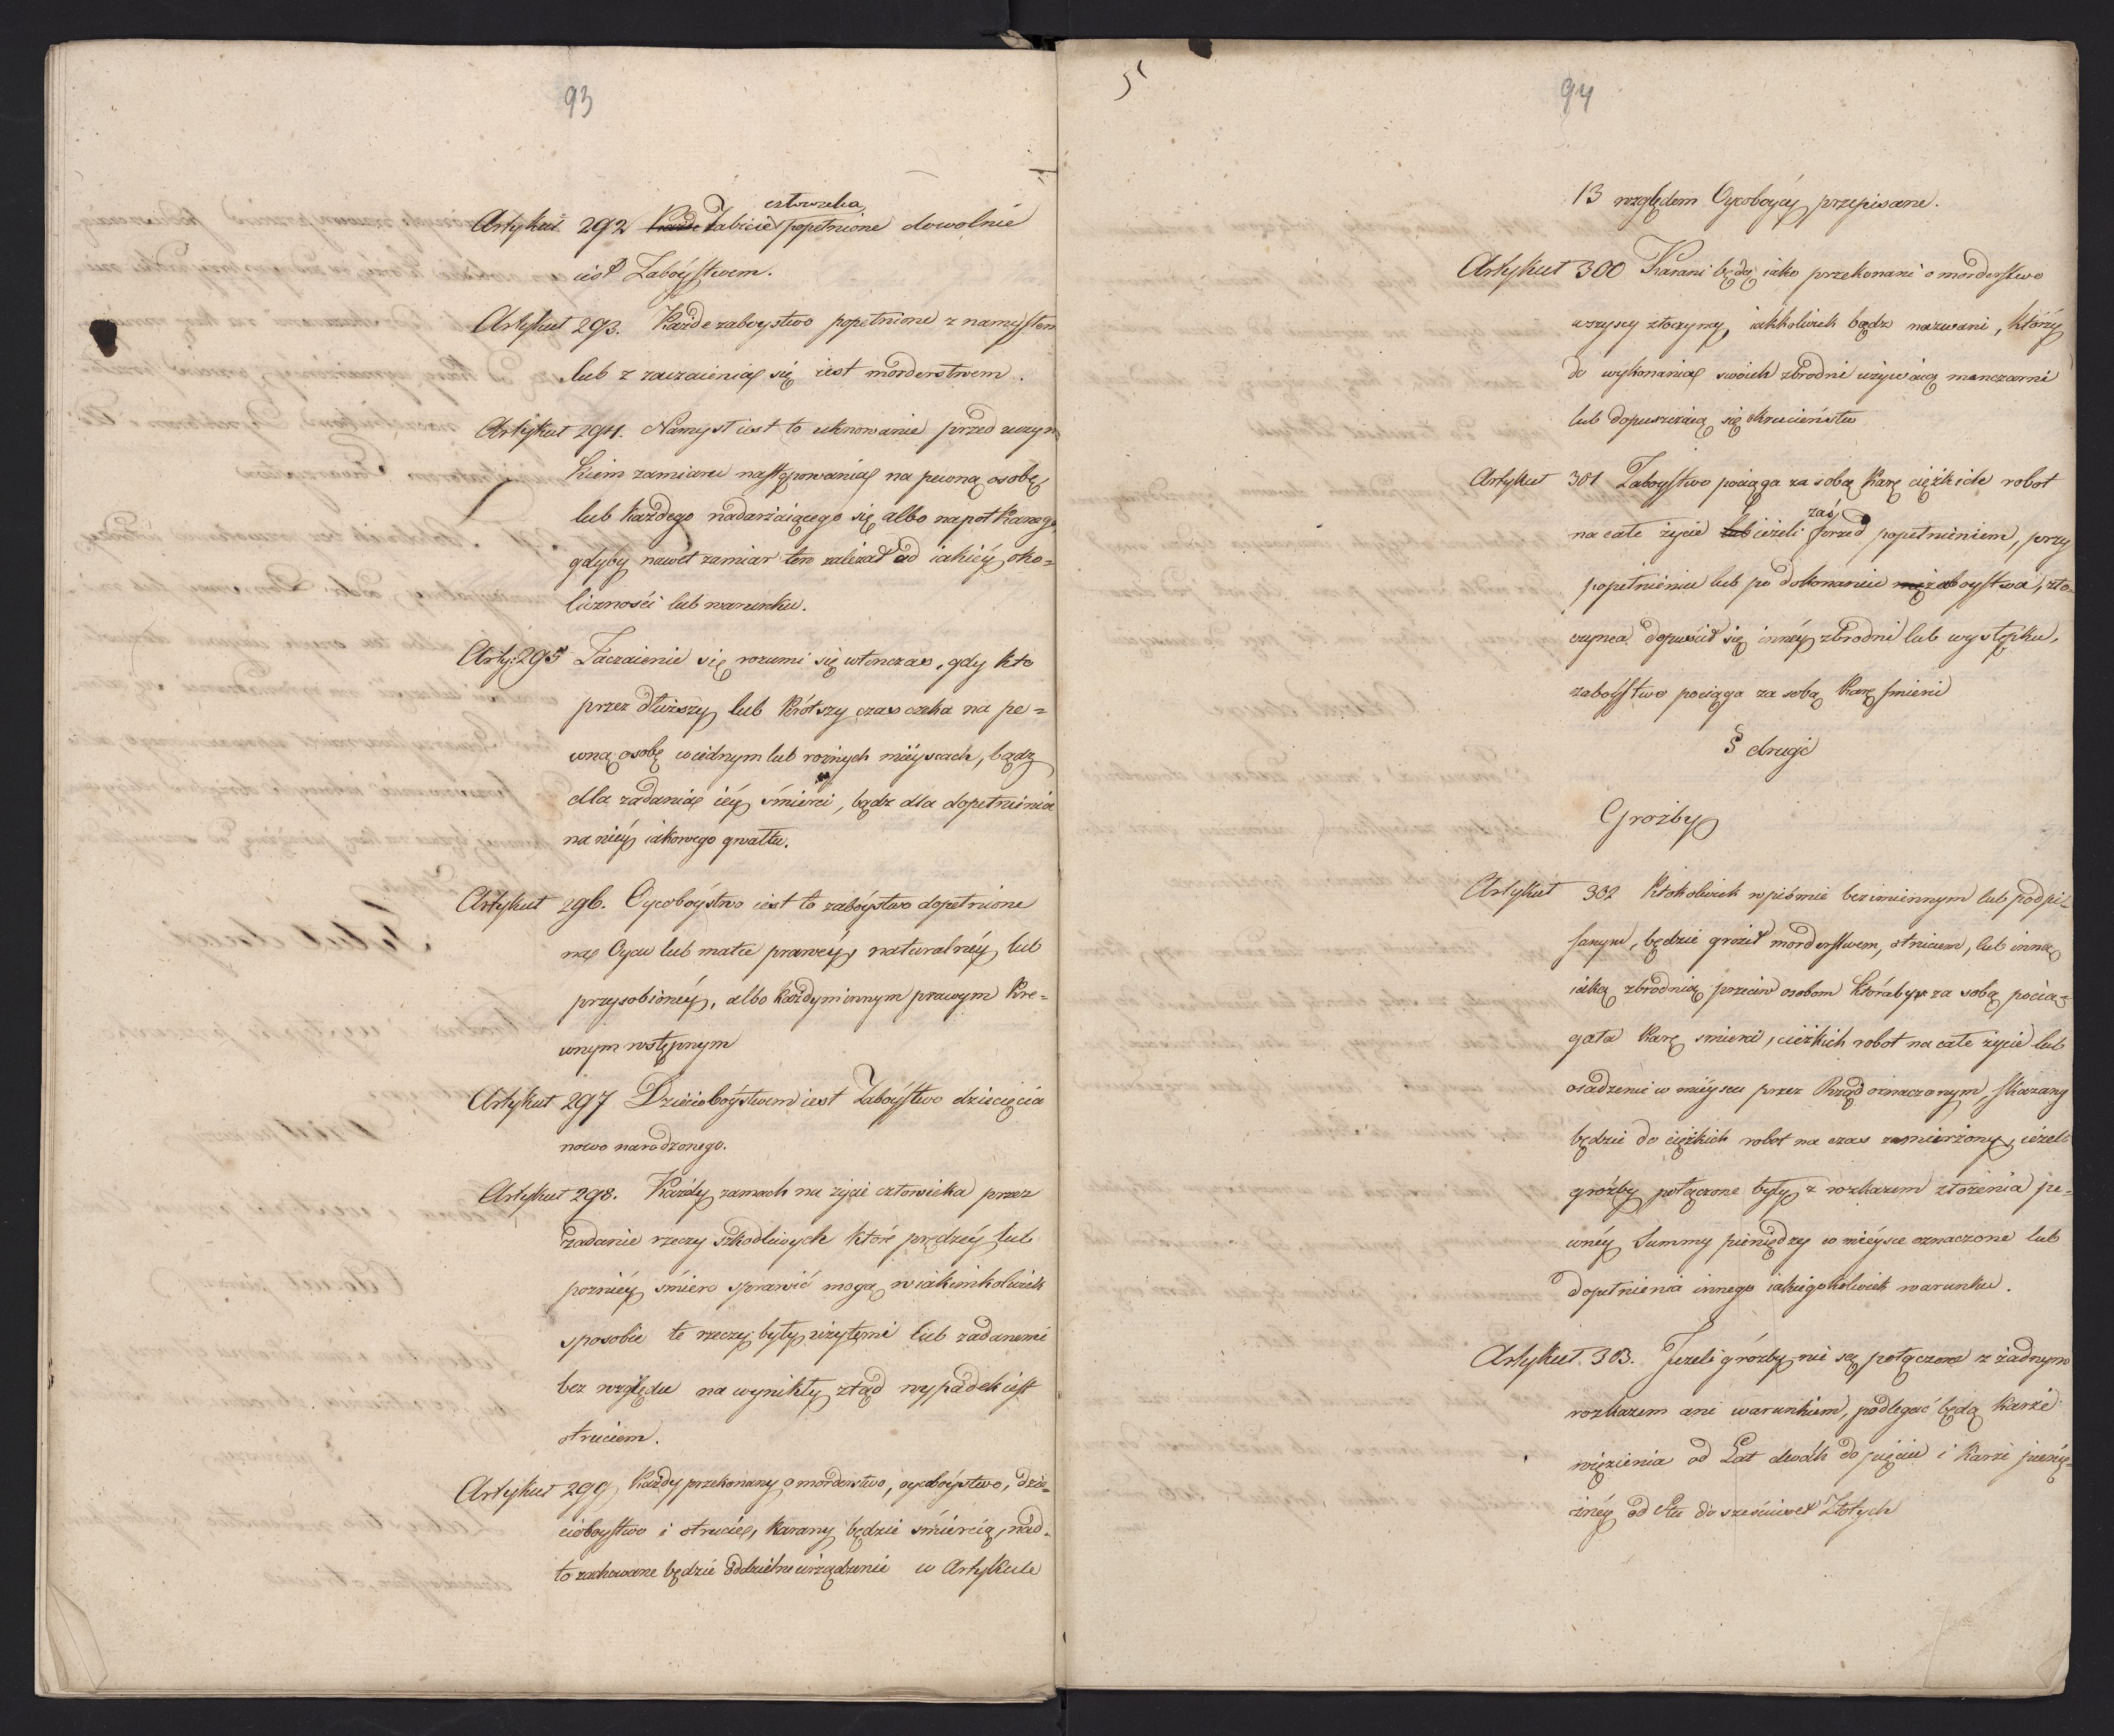 93
człowieka
Artykuł 292 Każde Zabicie popełnione dowolnie
iest Zabóystwem.
Artykuł 293. Każde zaboystwo popełnione z namysłem
lub z zaczaienia się iest morderstwem.
Artykuł 294. Namysł iest to uknowanie przed uczyn
kiem zamiaru nastąpowania na pewną osobę,
lub każdego nadarzaiącego się albo napotkanego,
gdyby nawet zamiar ten zależał od iakiéy oko=
liczności lub warunku.
Arty: 295 Zaczaienie się rozumi się wtenczas, gdy kto
przez dłuższy lub krótszy czas czeka na pe=
wną osobę w iednym lub rożnych miéyscach, bądz
dla zadania iéy śmierci, bądz dla dopełnienia
na niéy iakowego gwałtu.
Artykuł 296. Oycobóystwo iest to zabóystwo dopełnione
na Oycu lub matce prawéy, naturalnéy lub
przysobionéy, albo każdym innym prawym kre=
wnym wstępnym
Artykuł 297 Dzieciobóystwem iest Zabóystwo dziecięcia
nowo narodzonego.
Artykuł 298. Każdy zamach na życie człowieka przez
zadanie rzeczy szkodliwych które prędzéy lub
pozniéy śmierc sprawić mogą w iakimkolwiek
sposobie te rzeczy były użytemi lub zadanemi
bez względu na wynikły ztąd wypadek iest
struciem.
Artykuł 299 Każdy przekonany o morderstwo, oycobóystwo, dzie=
cioboystwo i strucie, karany będzie śmiercią, nad=
to zachowane będzie oddzielne urządzenie w Artykule
5
94
13 względem Oycoboycy przepisane.
Artykuł 300 Karani będą iako przekonani o morderstwo
wszyscy złoczyncy, iakkolwiek bądz nazwani, którzy
do wykonania swoich zbrodni używaią męnczarni
lub dopuszczaią się okrucieństw
Artykuł 301 Zaboystwo pociąga za sobą karę ciężkich robot
zaś
na całe życie lub ieżeli przed popełnieniem, przy
popełnieniu lub po dokonaniu zaboystwa, zło=
czynca dopuścił się innéy zbrodni lub występku,
zaboystwo pociąga za sobą karę smierci
§ drugi
Groźby
Artykuł 302 Ktokolwiek w piśmie bezimiennym lub podpi=
sanym, będzie groził morderstwem, struciem, lub inną
iaką zbrodnią przeciw osobom któraby za sobą pocią=
gała karę smierci, cieżkich robot na całe życie lub
osadzenie w miéyscu przez Rząd oznaczonym, skazany
będzie do ciężkich robot na czas zamierzony, ieżeli
gróżby połączone były z rozkazem złożenia pe=
wnéy Summy pieniędzy w miéysce oznaczone lub
dopełnienia innego iakiegokolwiek warunku.
Artykuł 303. Jeżeli gróżby nie są połączone z żadnym
rozkazem ani warunkiem, podlegać będą karze
więzienia od Lat dwóch do pięciu i karze pienię=
żnéy od Stu do sześciuset Złotych